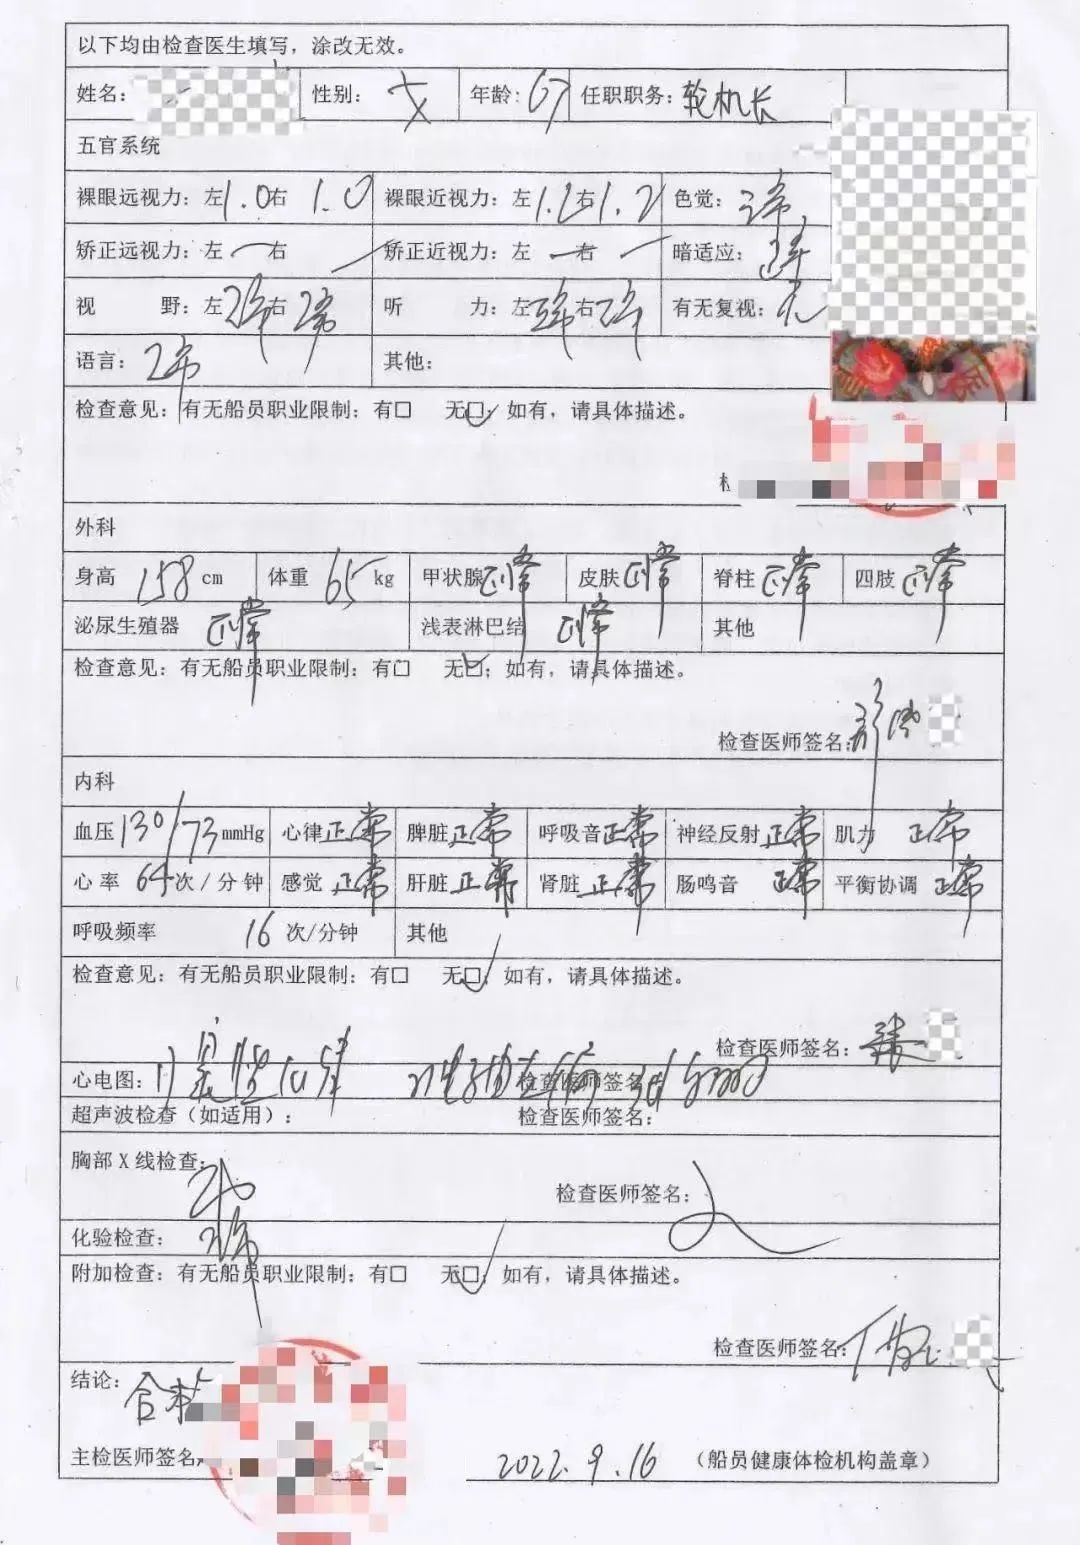 以下均由检查医生填写，涂改无效。
姓名： 性别： 女 年龄：67 任职职务：轮机长
五官系统
裸眼远视力：左1.0右 1.0 裸眼近视力：左1.2右1.2 色觉：正常
矫正远视力：左 一 右 一 矫正近视力：左 一 右 一 暗适应：正常
视 野：左正常右正常 听 力：左正常右正常 有无复视：无
语言：正常 其他：
检查意见：有无船员职业限制：有□ 无□；如有，请具体描述。
外科
身高 158 cm 体重 65 kg 甲状腺正常 皮肤正常 脊柱正常 四肢正常
泌尿生殖器 正常 浅表淋巴结 正常 其他
检查意见：有无船员职业限制：有□ 无□；如有，请具体描述。
检查医师签名：
内科
血压130/73mmHg 心律正常 脾脏正常 呼吸音正常 神经反射正常 肌力 正常
心率 64次/分钟 感觉 正常 肝脏 正常 肾脏 正常 肠鸣音 正常 平衡协调 正常
呼吸频率 16 次/分钟 其他
检查意见：有无船员职业限制：有□ 无□；如有，请具体描述。
检查医师签名：
心电图： 检查医师签名：
超声波检查（如适用）： 检查医师签名：
胸部X线检查： 检查医师签名：
化验检查： 正常
附加检查：有无船员职业限制：有□ 无□；如有，请具体描述。
检查医师签名：
结论： 合格
主检医师签名： 2022.9.16 （船员健康体检机构盖章）